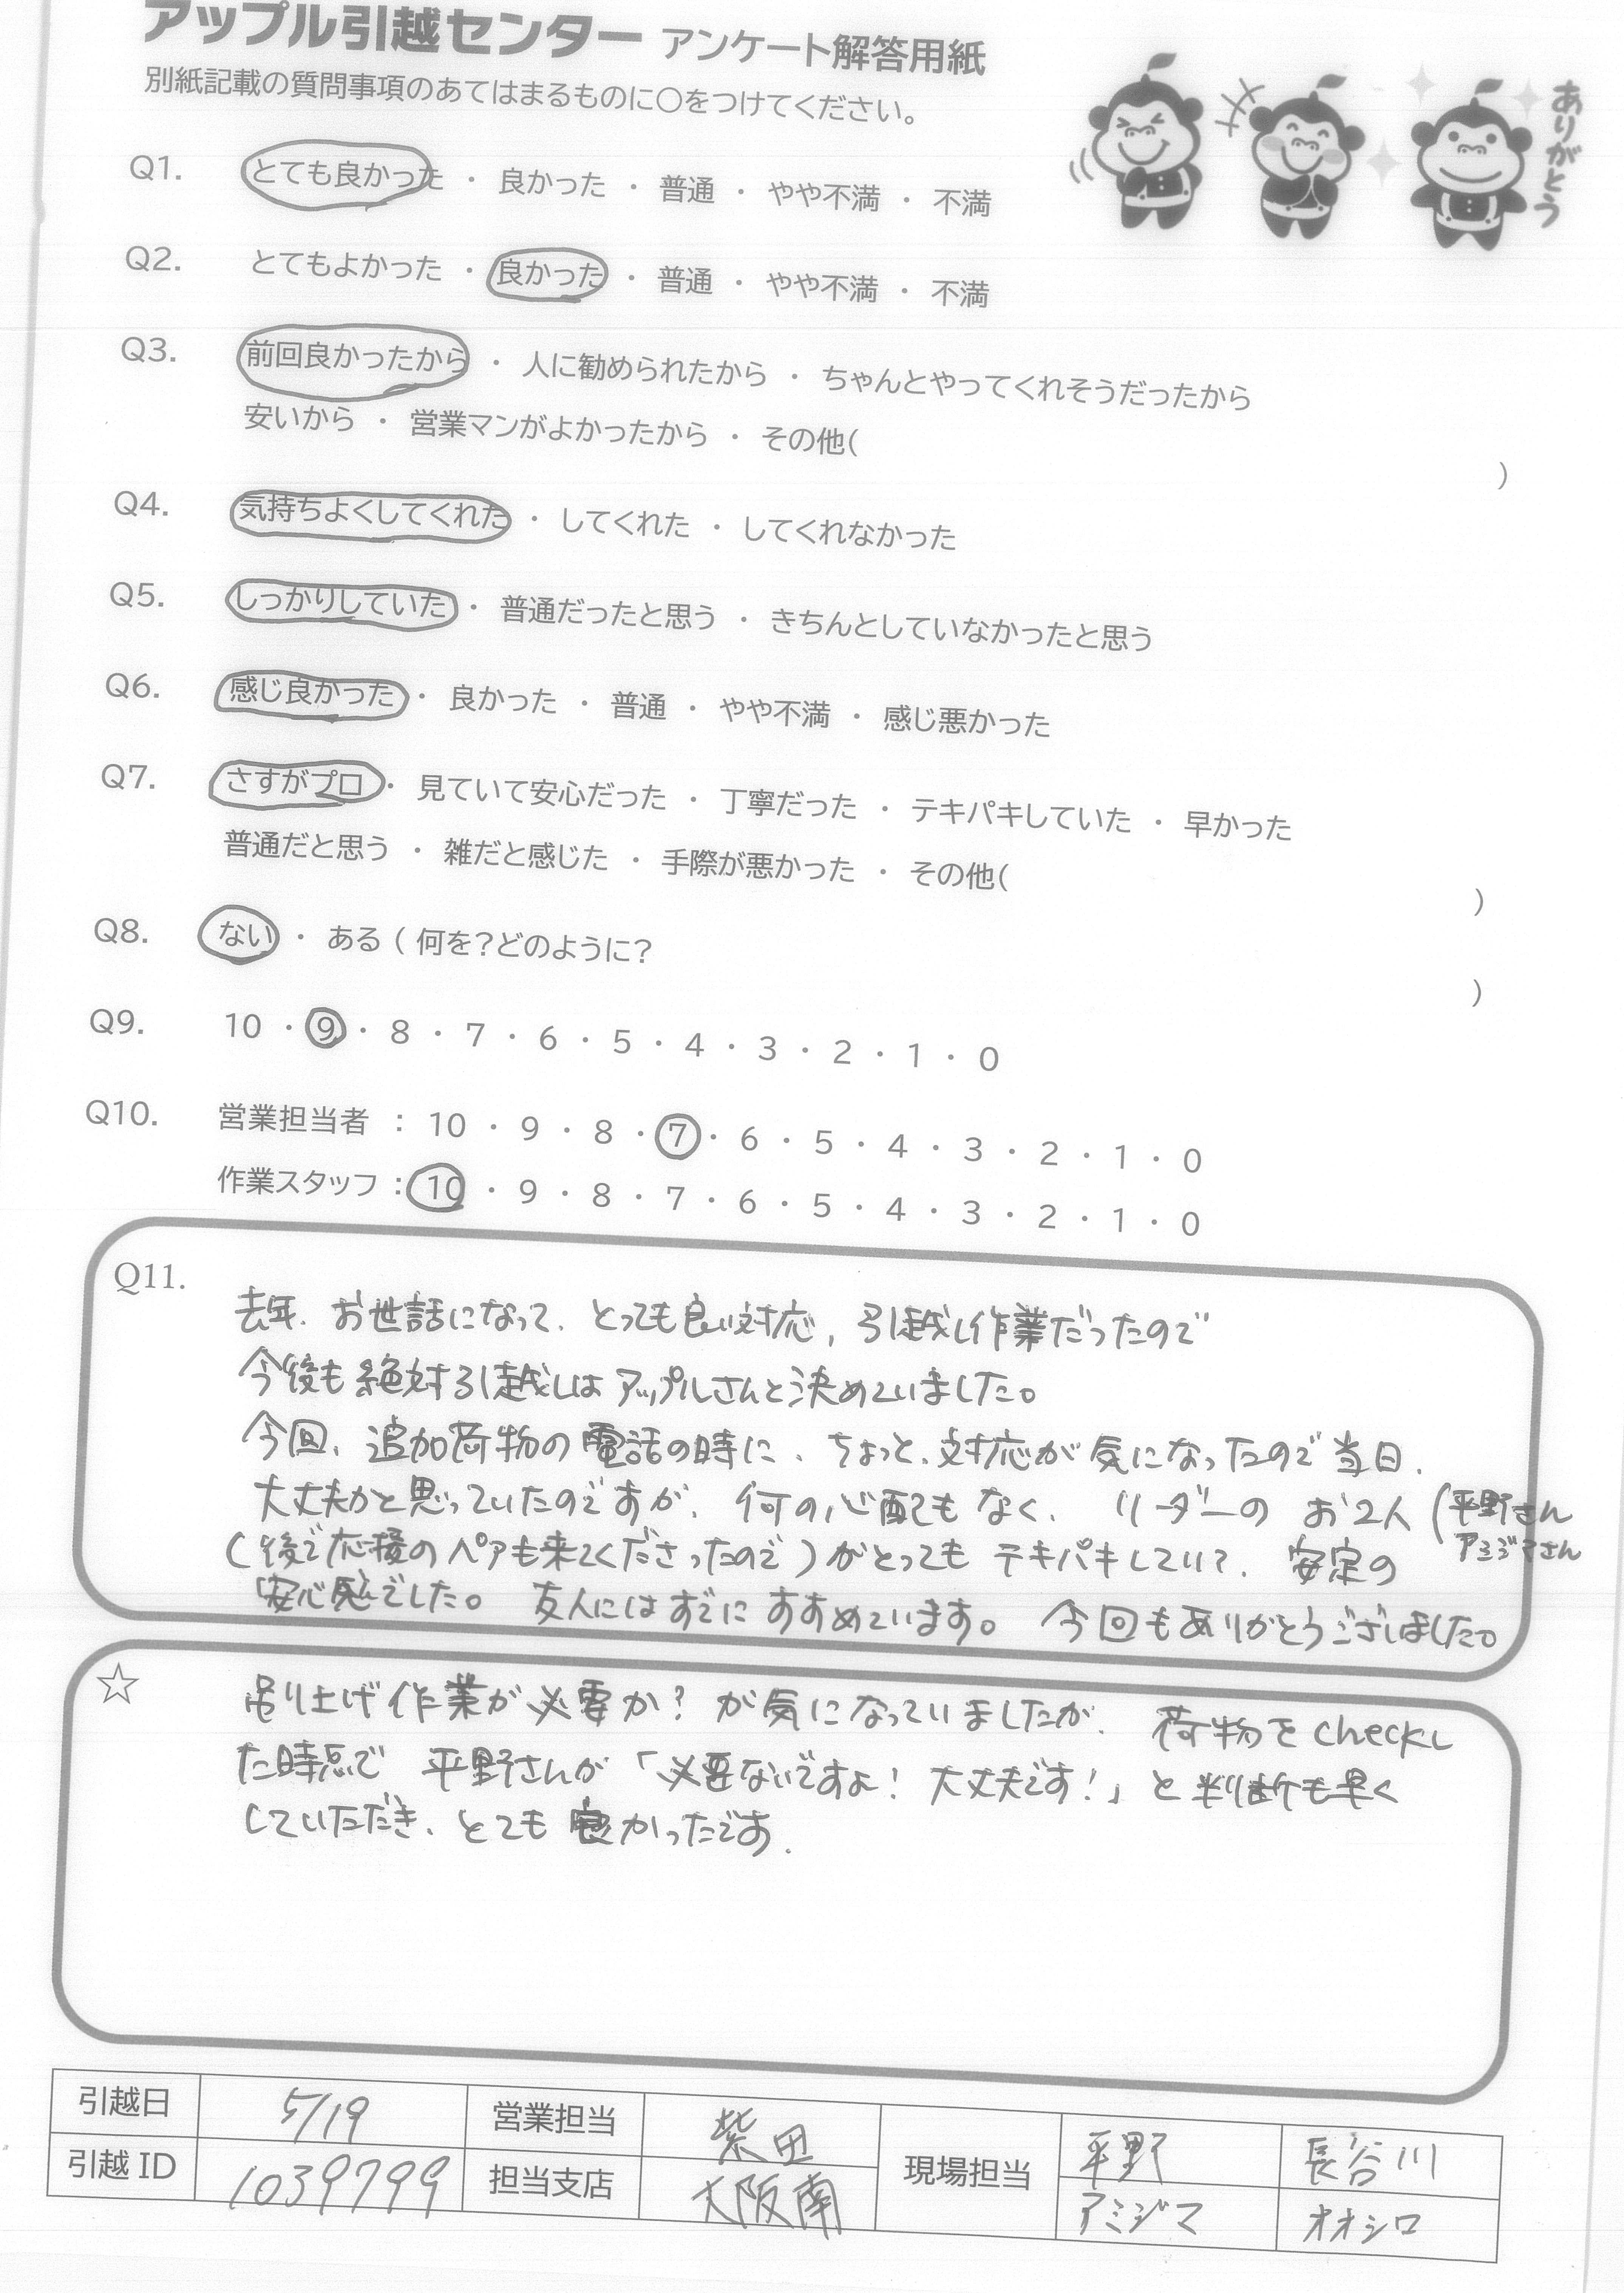 アップル引越センター アンケート解答用紙
別紙記載の質問事項のあてはまるものに〇をつけてください。
ありがとう
Q1. とても良かった ・ 良かった ・ 普通 ・ やや不満 ・ 不満
Q2. とてもよかった ・ 良かった ・ 普通 ・ やや不満 ・ 不満
Q3. 前回良かったから ・ 人に勧められたから ・ ちゃんとやってくれそうだったから
安いから ・ 営業マンがよかったから ・ その他( )
Q4. 気持ちよくしてくれた ・ してくれた ・ してくれなかった
Q5. しっかりしていた ・ 普通だったと思う ・ きちんとしていなかったと思う
Q6. 感じ良かった ・ 良かった ・ 普通 ・ やや不満 ・ 感じ悪かった
Q7. さすがプロ ・ 見ていて安心だった ・ 丁寧だった ・ テキパキしていた ・ 早かった
普通だと思う ・ 雑だと感じた ・ 手際が悪かった ・ その他( )
Q8. ない ・ ある ( 何を?どのように? )
Q9. 10 ・ 9 ・ 8 ・ 7 ・ 6 ・ 5 ・ 4 ・ 3 ・ 2 ・ 1 ・ 0
Q10. 営業担当者 : 10 ・ 9 ・ 8 ・ 7 ・ 6 ・ 5 ・ 4 ・ 3 ・ 2 ・ 1 ・ 0
作業スタッフ : 10 ・ 9 ・ 8 ・ 7 ・ 6 ・ 5 ・ 4 ・ 3 ・ 2 ・ 1 ・ 0
Q11.
去年、お世話になって、とっても良い対応、引越し作業だったので
今後も絶対引越しはアップルさんと決めていました。
今回、追加荷物の電話の時に、ちょっと、対応が気になったので当日、
大丈夫かと思っていたのですが、何の心配もなく、リーダーの お2人 (平野さん
アミジマさん
(後で応援のペアも来てくださったので)がとっても テキパキしていて、安定の
安心感でした。 友人にはすでにすすめています。 今回もありがとうございました。
☆ 吊り上げ作業が必要か? が気になっていましたが、 荷物をcheckし
た時点で 平野さんが「必要ないですよ! 大丈夫です!」と判断も早く
していただき、とても 良かったです.
引越日 5/19 営業担当 紫田 現場担当 平野 長谷川
引越ID 1039799 担当支店 大阪南 アミジマ オオシロ